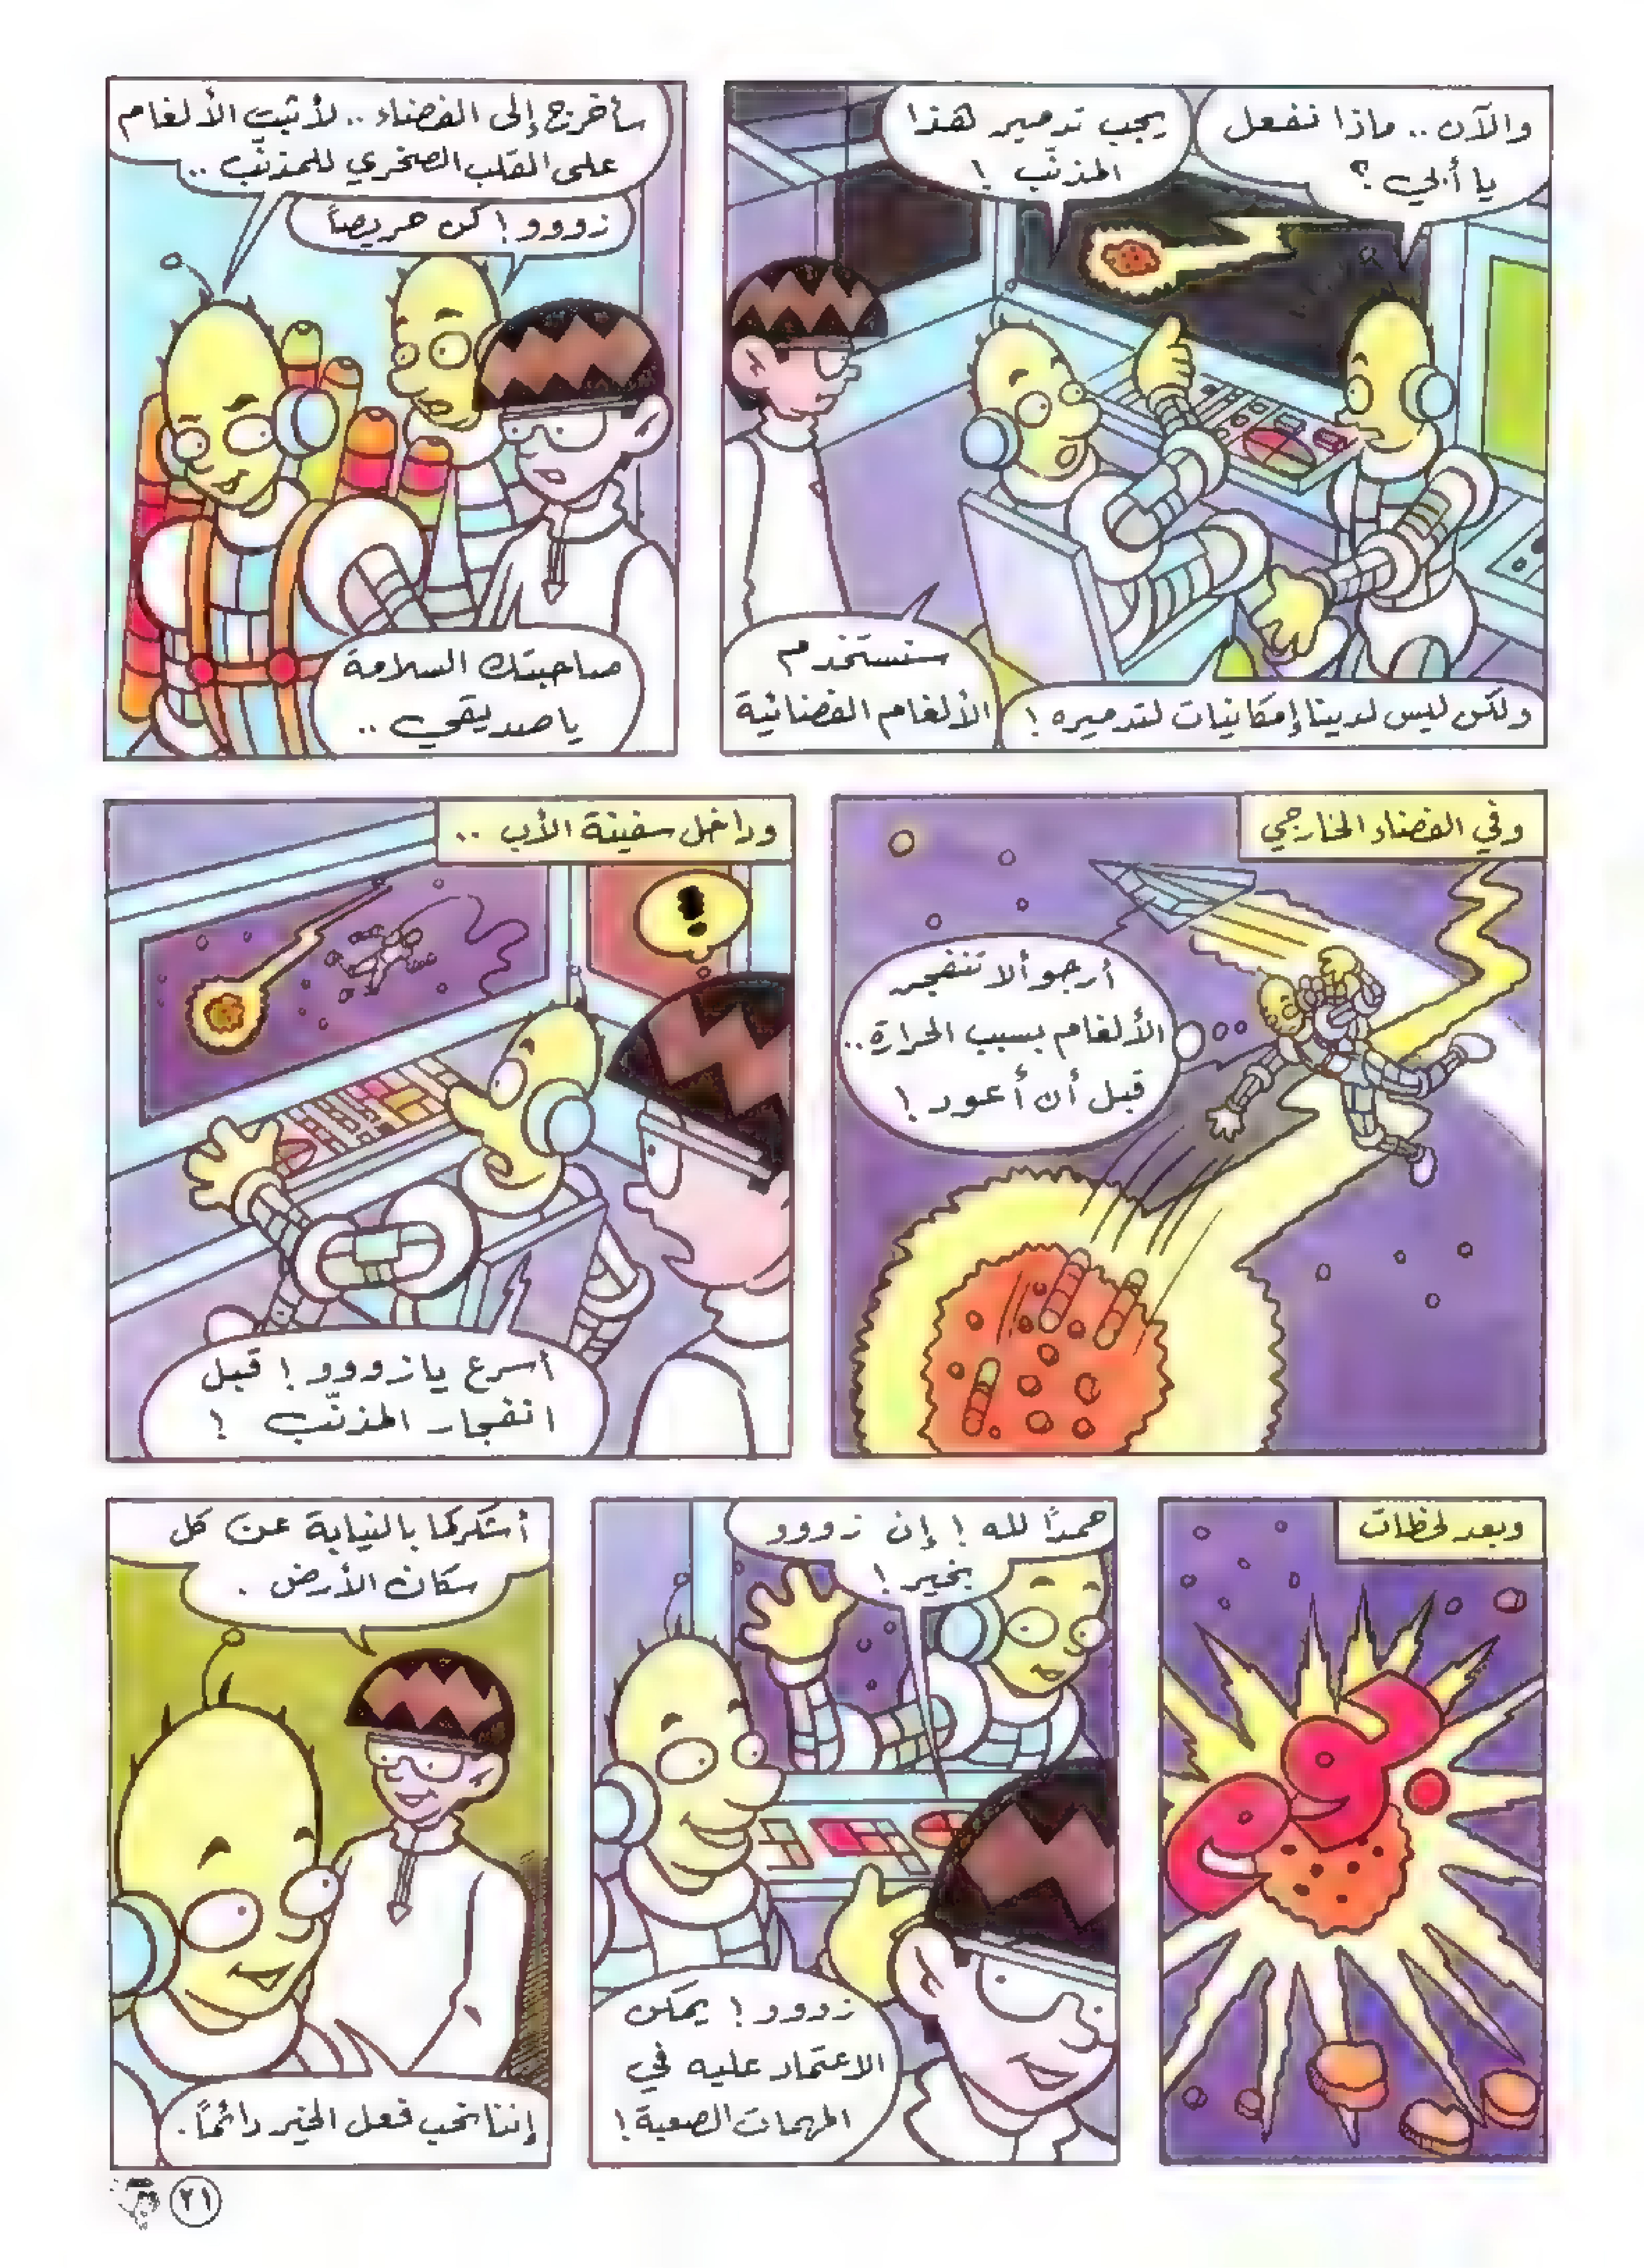 والآن .. ماذا نفعل
يا أبي ؟
يجب تدمير هذا
المذنّب !
ولكن ليس لدينا إمكانيات لتدميره !
سنستخدم
الألغام الفضائية
سأخرج إلى الفضاء .. لأثبت الألغام
على القلب الصخري للمذنّب ..
زووو ! كن حريصاً
صاحبتك السلامة
يا صديقي ..
وفي الفضاء الخارجي
أرجو ألا تنفجر
الألغام بسبب الحرارة ..
قبل أن أعود !
وداخل سفينة الأب ..
!
أسرع يا زووو ! قبل
انفجار المذنّب !
وبعد لحظات
بووو م
حمداً لله ! إن زووو
بخير !
زووو ! يمكن
الاعتماد عليه في
المهمات الصعبة !
أشكركما بالنيابة عن كل
سكان الأرض .
إننا نحب فعل الخير دائماً .
٢١